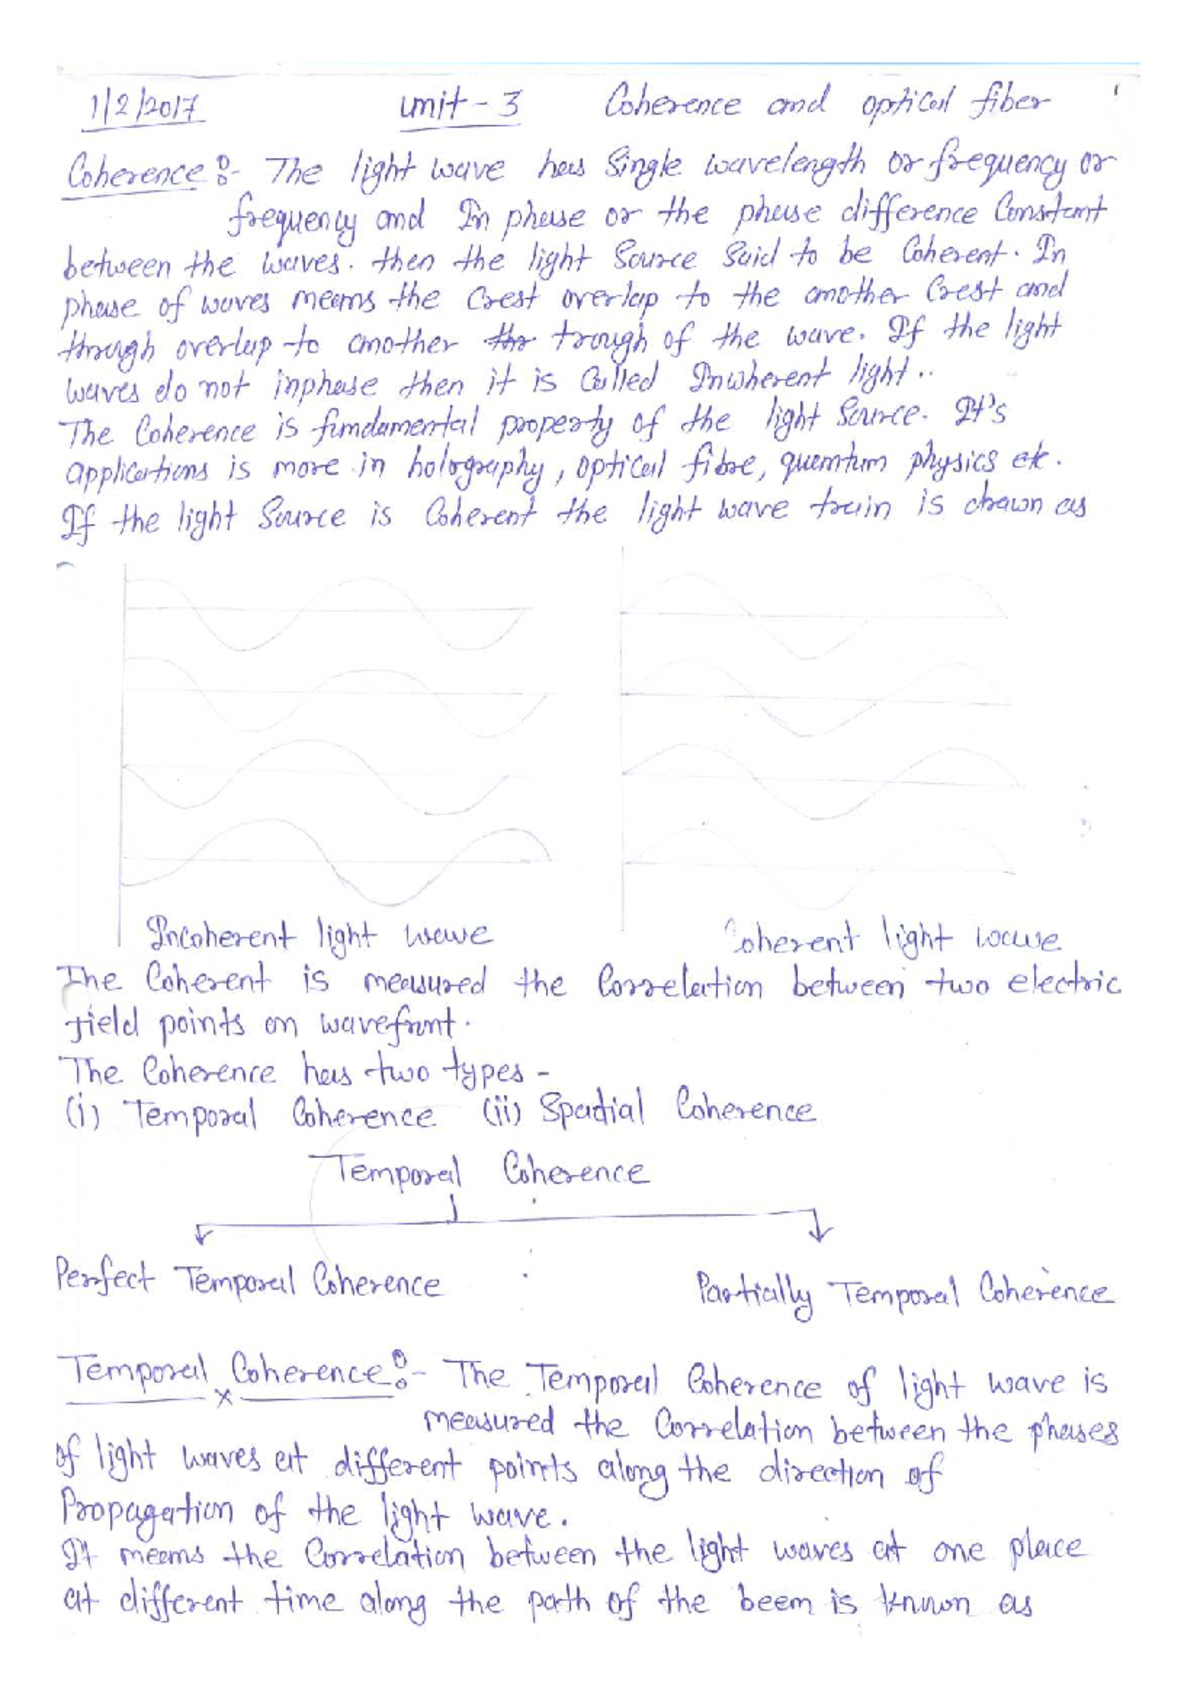 1/2/2017 unit - 3 Coherence and optical fiber 1
Coherence :- The light wave has Single wavelength or frequency or
frequency and In phase or the phase difference Constant
between the waves. then the light Source Said to be Coherent. In
phase of waves means the Crest overlap to the another Crest and
through overlap to another the trough of the wave. If the light
waves do not inphase then it is Called Incoherent light..
The Coherence is fundamental property of the light Source. It's
applications is more in holography, optical fibre, quantum physics etc.
If the light Source is Coherent the light wave train is drawn as
Incoherent light wave Coherent light wave
The Coherent is measured the Correlation between two electric
field points on wavefront.
The Coherence has two types -
(i) Temporal Coherence (ii) Spatial Coherence
Temporal Coherence
Perfect Temporal Coherence Partially Temporal Coherence
Temporal Coherence :- The Temporal Coherence of light wave is
measured the Correlation between the phases
of light waves at different points along the direction of
Propagation of the light wave.
It means the Correlation between the light waves at one place
at different time along the path of the beem is known as